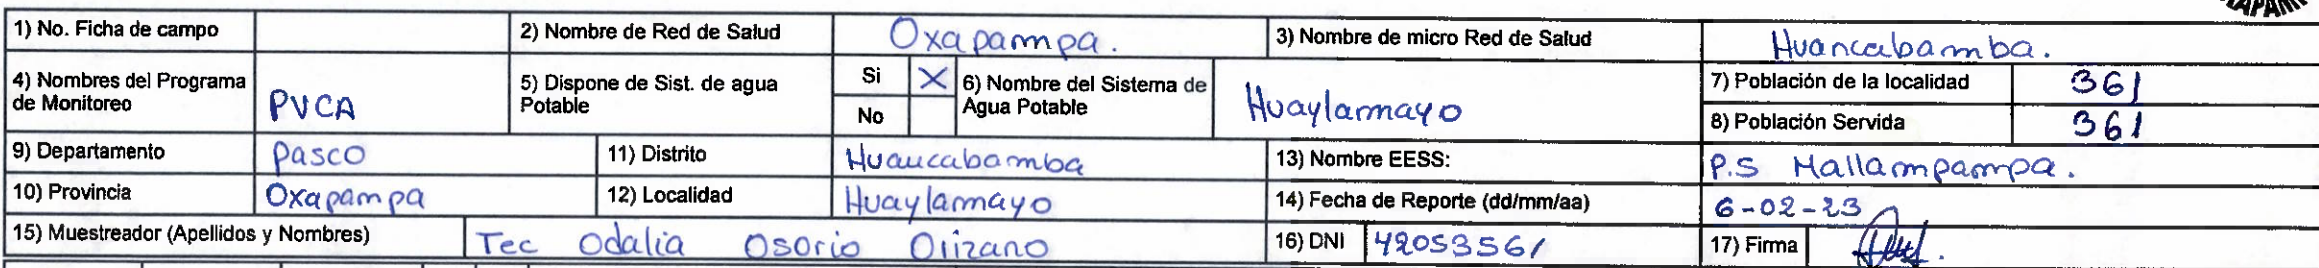 1) No. Ficha de campo 2) Nombre de Red de Salud Oxapampa. 3) Nombre de micro Red de Salud Huancabamba.
4) Nombres del Programa de Monitoreo PVCA 5) Dispone de Sist. de agua Potable Si X No 6) Nombre del Sistema de Agua Potable Huaylamayo 7) Población de la localidad 361
8) Población Servida 361
9) Departamento Pasco 11) Distrito Huancabamba 13) Nombre EESS: P.S Mallampampa.
10) Provincia Oxapampa 12) Localidad Huaylamayo 14) Fecha de Reporte (dd/mm/aa) 6-02-23
15) Muestreador (Apellidos y Nombres) Tec Odalia Osorio Orizano 16) DNI 42053561 17) Firma